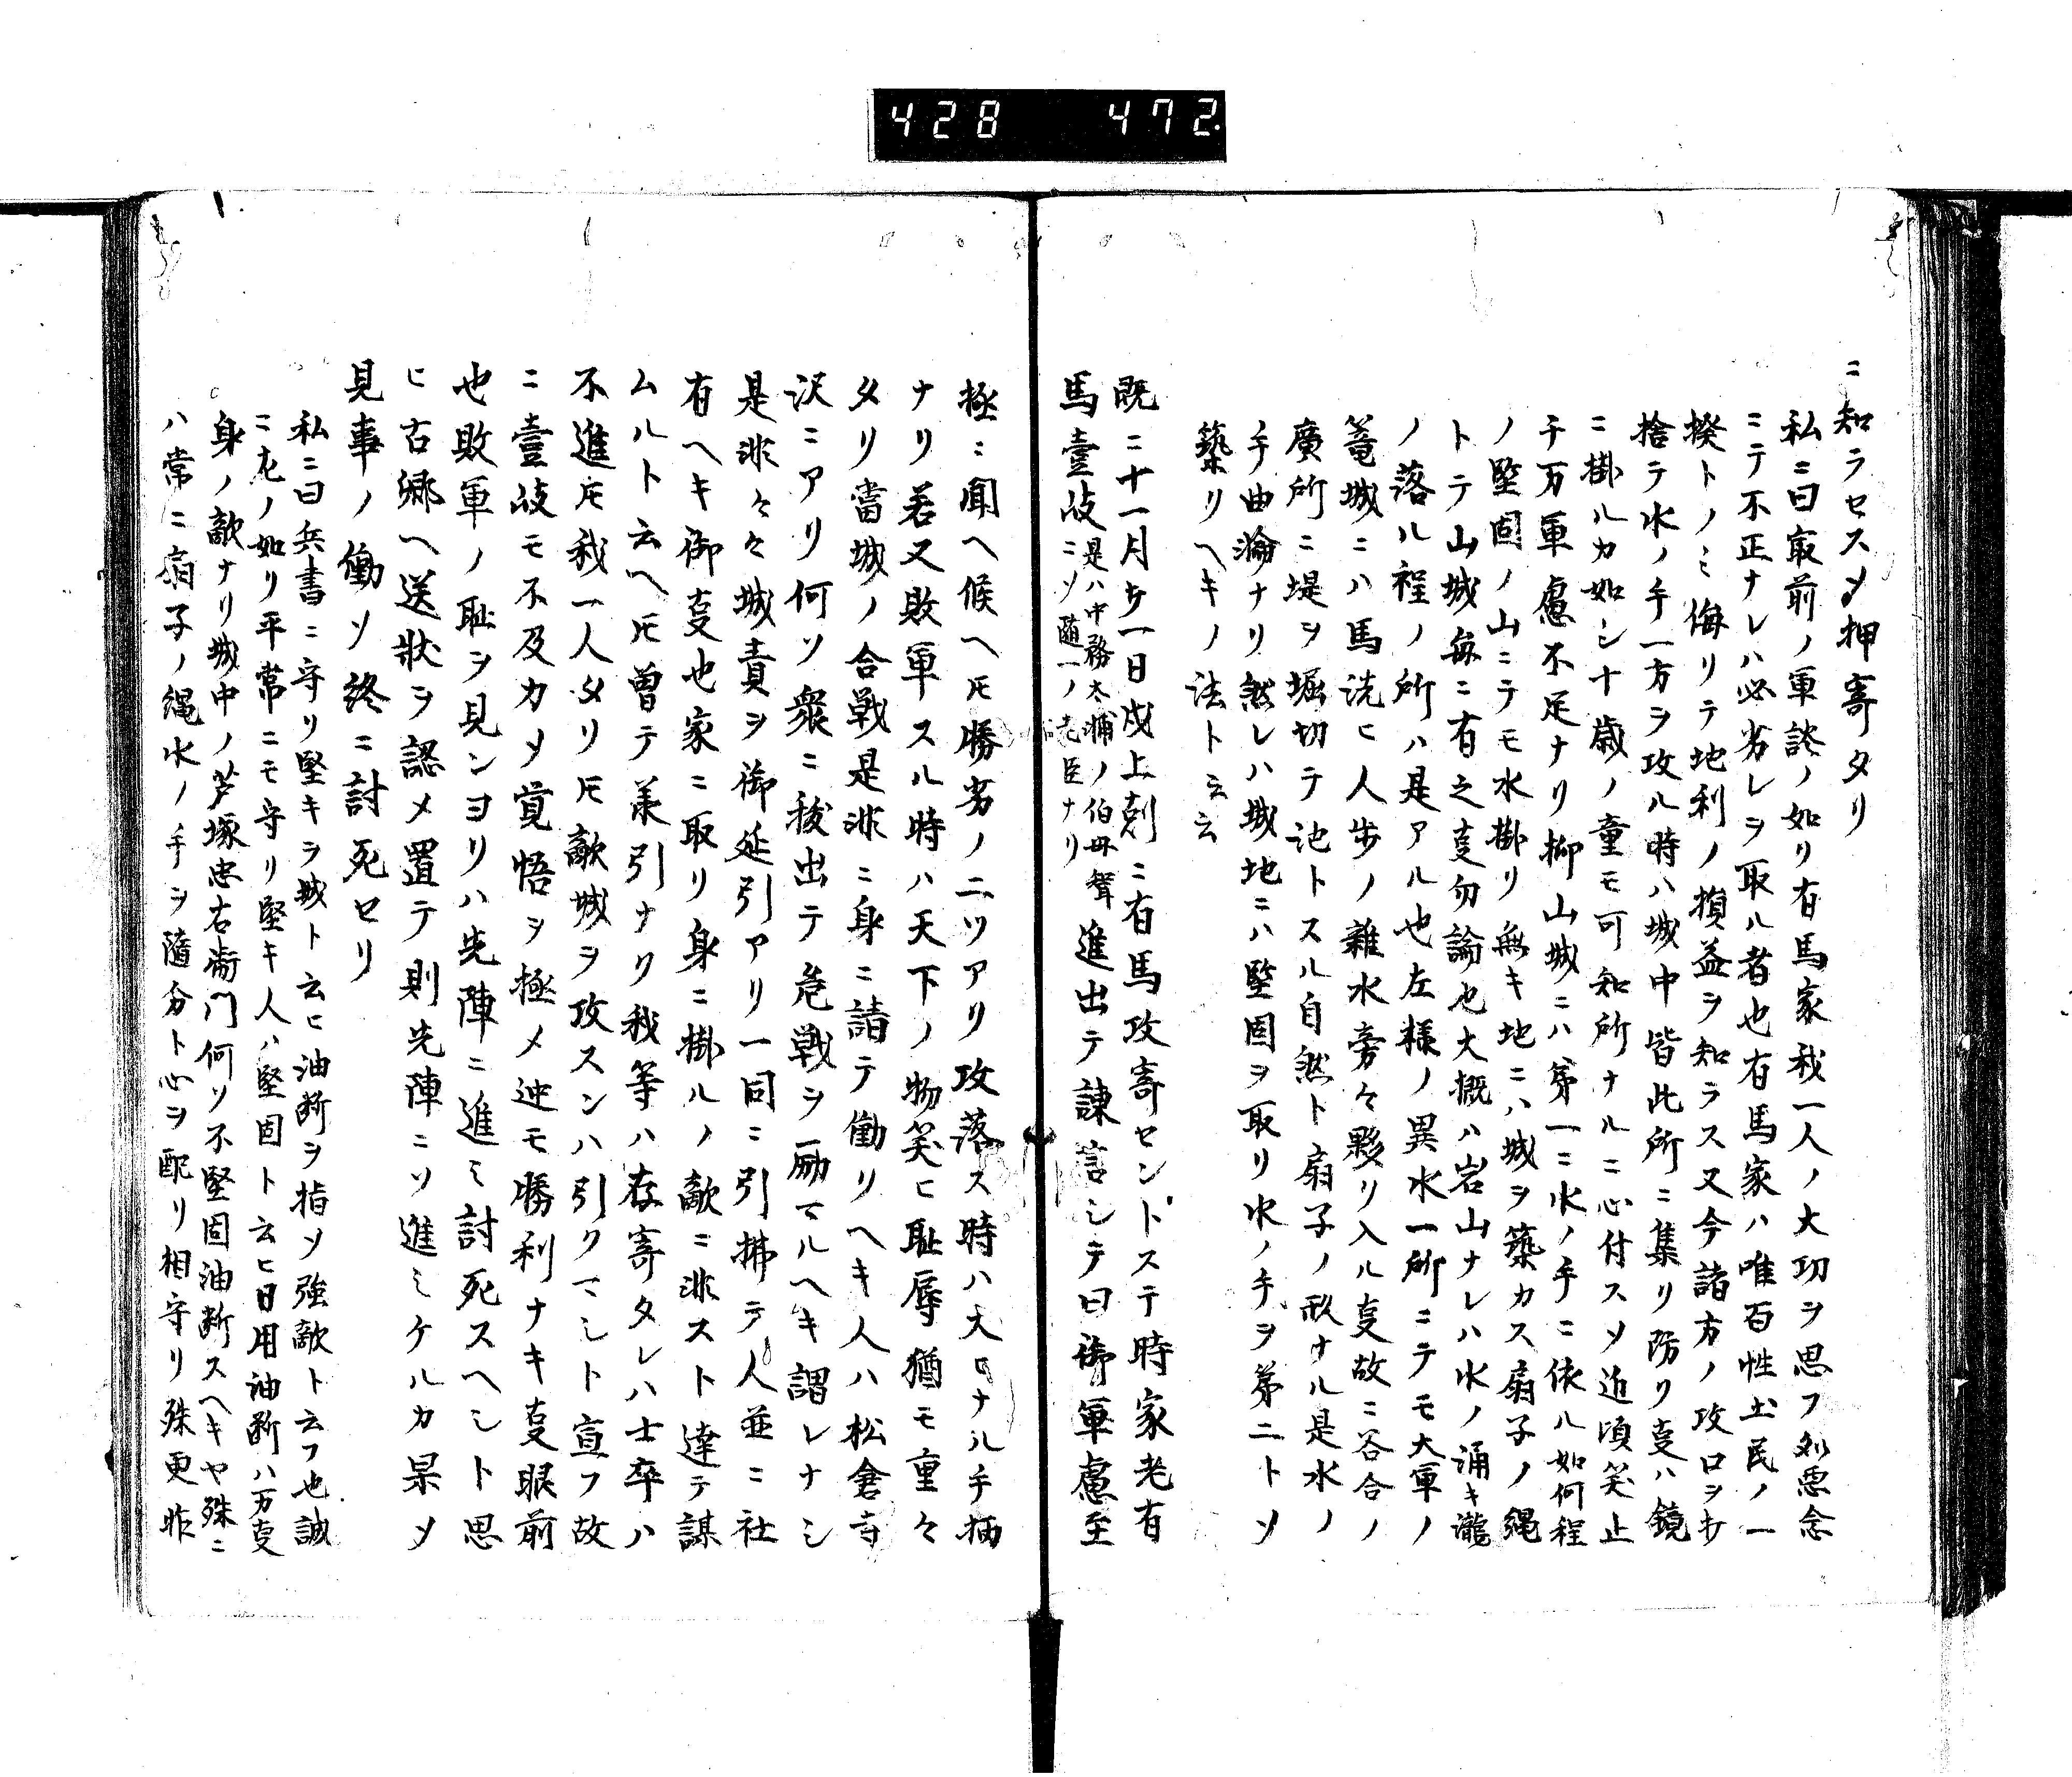 428 472.
ニ知ラセスメ押寄タリ
私ニ曰最前ノ軍談ノ如リ有馬家我一人ノ大功ヲ思フ処悪念
ニテ不正ナレハ必劣レヲ取ル者也有馬家ハ唯百性土民ノ一
揆トノミ侮リテ地利ノ損益ヲ知ラス又今諸方ノ攻口ヲ打
捨テ水ノ手一方ヲ攻ル時ハ城中皆此所ニ集リ防リ㕝ハ鏡
ニ掛ルカ如シ十歳ノ童モ可知所ナルニ心付スメ近頃笑止
千万軍慮不足ナリ抑山城ニハ第一ニ水ノ手ニ依ル如何程
ノ堅固ノ山ニテモ水掛リ無キ地ニハ城ヲ築カス扇子ノ縄
トテ山城毎ニ有之㕝勿論也大概ハ岩山ナレハ水ノ涌キ瀧
ノ落ル程ノ所ハ是アル也左様ノ異水一所ニテモ大軍ノ
篭城ニハ馬洗ヒ人歩ノ雜水旁々夥リ入ル㕝故ニ谷合ノ
廣所ニ堤ヲ堀切テ池トスル自然ト扇子ノ形ナル是水ノ
手曲淪ナリ然レハ城地ニハ堅固ヲ取リ水ノ手ヲ第二トソ
築リヘキノ法ト云云
既ニ十一月廿一日戌上剋ニ有馬攻寄セントステ時家老有
馬壹岐是ハ中務太輔ノ伯母聟ニソ随一ノ老臣ナリ進出テ諌言シテ曰御軍慮至
極ニ聞ヘ候ヘ𪜈勝劣ノ二ツアリ攻落ス時ハ大ロナル手柄
ナリ若又敗軍スル時ハ天下ノ物笑ヒ恥辱猶モ重々
タリ當城ノ合戦是非ニ身ニ請テ働リヘキ人ハ松倉寺
沢ニアリ何ソ衆ニ抜出テ危戦ヲ励マルヘキ謂レナシ
是非々々城責ヲ御延引アリ一同ニ引拂テ人並ニ社
有ヘキ御㕝也家ニ取リ身ニ掛ルノ敵ニ非スト達テ諌
ムルト云ヘ𪜈曽テ羕引ナク我等ハ存寄タレハ士卒ハ
不進𪜈我一人タリ𪜈敵城ヲ攻スンハ引クマシト宣フ故
ニ壹岐モ不及カメ覚悟ヲ極メ迚モ勝利ナキ㕝眼前
也敗軍ノ恥ヲ見ンヨリハ先陣ニ進ミ討死スヘシト思
ヒ古郷ヘ送狀ヲ認メ置テ則先陣ニソ進ミケルカ果メ
見事ノ働ソ終ニ討死セリ
私ニ曰兵書ニ守リ堅キヲ城ト云ヒ油断ヲ指ソ強敵ト云フ也誠
ニ左ノ如リ平常ニモ守リ堅キ人ハ堅固ト云ヒ日用油断ハ万㕝
身ノ敵ナリ城中ノ芦塚忠右衛門何ソ不堅固油断スヘキヤ殊ニ
ハ常ニ扇子ノ縄水ノ手ヲ隨分ト心ヲ配リ相守リ殊更昨